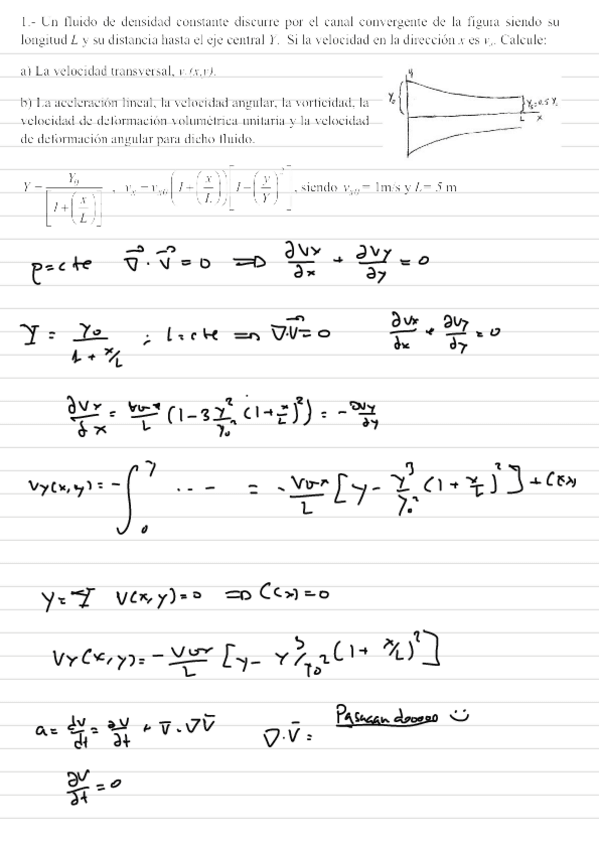 1.- Un fluido de densidad constante discurre por el canal convergente de la figura siendo su
longitud L y su distancia hasta el eje central Y. Si la velocidad en la dirección x es vₓ. Calcule:
a) La velocidad transversal, vᵧ(x,y).
b) La aceleración lineal, la velocidad angular, la vorticidad, la
velocidad de deformación volumétrica unitaria y la velocidad
de deformación angular para dicho fluido.
y
Y₀
Y_L=0.5 Y₀
L x
Y = Y₀ / [1+(x/L)] , vₓ = vₓ₀ (1+(x/L)) [1-(y/Y)²] , siendo vₓ₀ = 1m/s y L= 5 m
ρ=cte ∇·V = 0 ⇒ ∂Vx/∂x + ∂Vy/∂y = 0
Y = Y₀/(1 + x/L) ; ⇒ ∇·V=0 ∂Vx/∂x + ∂Vy/∂y = 0
∂Vx/∂x = V₀x/L (1-3 y²/Y₀² (1+x/L)²) = -∂Vy/∂y
Vy(x,y) = -∫₀^y ... = -V₀x/L [y - y³/Y₀² (1+x/L)²] + C(x)
y=Y V(x,y)=0 ⇒ C(x)=0
Vy(x,y) = -V₀x/L [y- y³/Y₀² (1+ x/L)²]
a= dv/dt = ∂V/∂t + V·∇V ∇·V =
∂V/∂t = 0